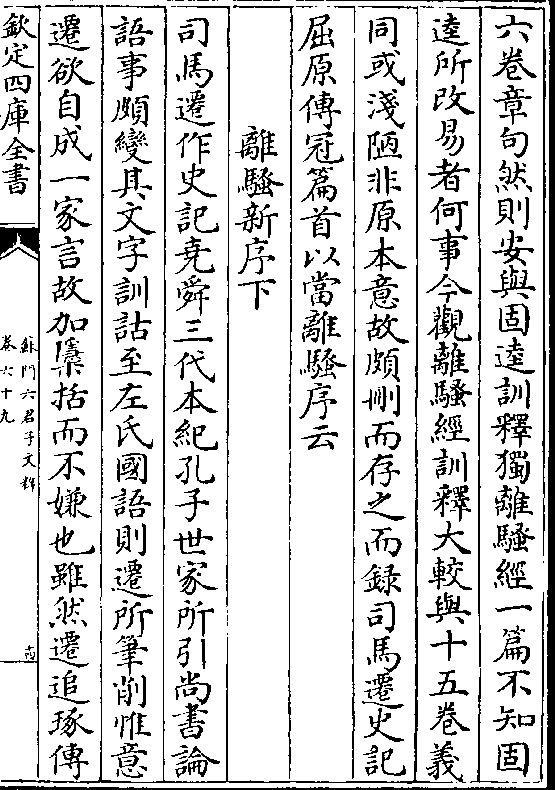 六卷章句然則安與固逵訓釋獨離騷經一篇不知固
逵所改易者何事今觀離騷經訓釋大較與十五卷義
同或淺陋非原本意故頗刪而存之而録司馬遷史記
屈原傳冠篇首以當離騷序云
離騷新序下
司馬遷作史記堯舜三代本紀孔子世家所引尚書論
語事頗變其文字訓詁至左氏國語則遷所筆削惟意
遷欲自成一家言故加櫽括而不嫌也雖然遷追琢傳
欽定四庫全書
蘇門六君子文粹
卷六十九
十四